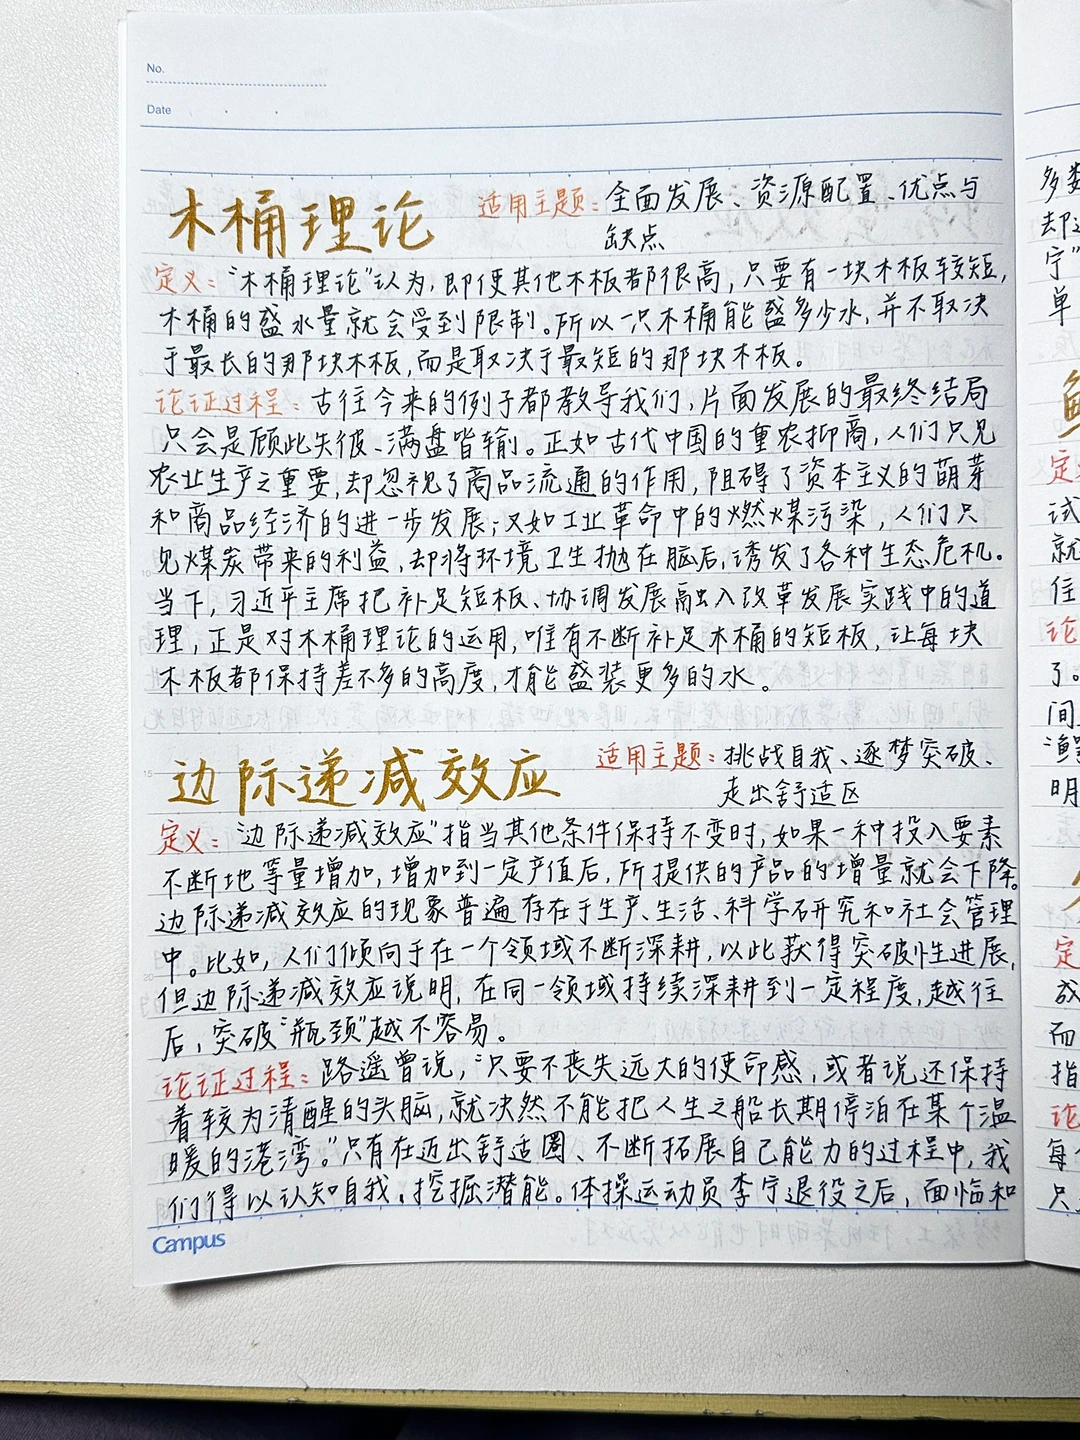 No.
Date
木桶理论
适用主题：全面发展、资源配置、优点与
缺点
定义：“木桶理论”认为，即使其他木板都很高，只要有一块木板较短，
木桶的盛水量就会受到限制。所以一只木桶能盛多少水，并不取决
于最长的那块木板，而是取决于最短的那块木板。
论证过程：古往今来的例子都教导我们，片面发展的最终结局
只会是顾此失彼、满盘皆输。正如古代中国的重农抑商，人们只见
农业生产之重要，却忽视了商品流通的作用，阻碍了资本主义的萌芽
和商品经济的进一步发展；又如工业革命中的燃煤污染，人们只
见煤炭带来的利益，却将环境卫生抛在脑后，诱发了各种生态危机。
当下，习近平主席把补足短板、协调发展融入改革发展实践中的道
理，正是对木桶理论的运用，唯有不断补足木桶的短板，让每块
木板都保持差不多的高度，才能盛装更多的水。
边际递减效应
适用主题：挑战自我、逐梦突破、
走出舒适区
定义：“边际递减效应”指当其他条件保持不变时，如果一种投入要素
不断地等量增加，增加到一定产值后，所提供的产品的增量就会下降。
边际递减效应的现象普遍存在于生产、生活、科学研究和社会管理
中。比如，人们倾向于在一个领域不断深耕，以此获得突破性进展，
但边际递减效应说明，在同一领域持续深耕到一定程度，越往
后，突破“瓶颈”越不容易。
论证过程：路遥曾说，“只要不丧失远大的使命感，或者说还保持
着较为清醒的头脑，就决然不能把人生之船长期停泊在某个温
暖的港湾。”只有在迈出舒适圈、不断拓展自己能力的过程中，我
们得以认知自我，挖掘潜能。体操运动员李宁退役之后，面临和
Campus
多数
却
宁”
单
定
试
就
住
论
了。
间
“鲶
明
定
成
而
指
论
每
只